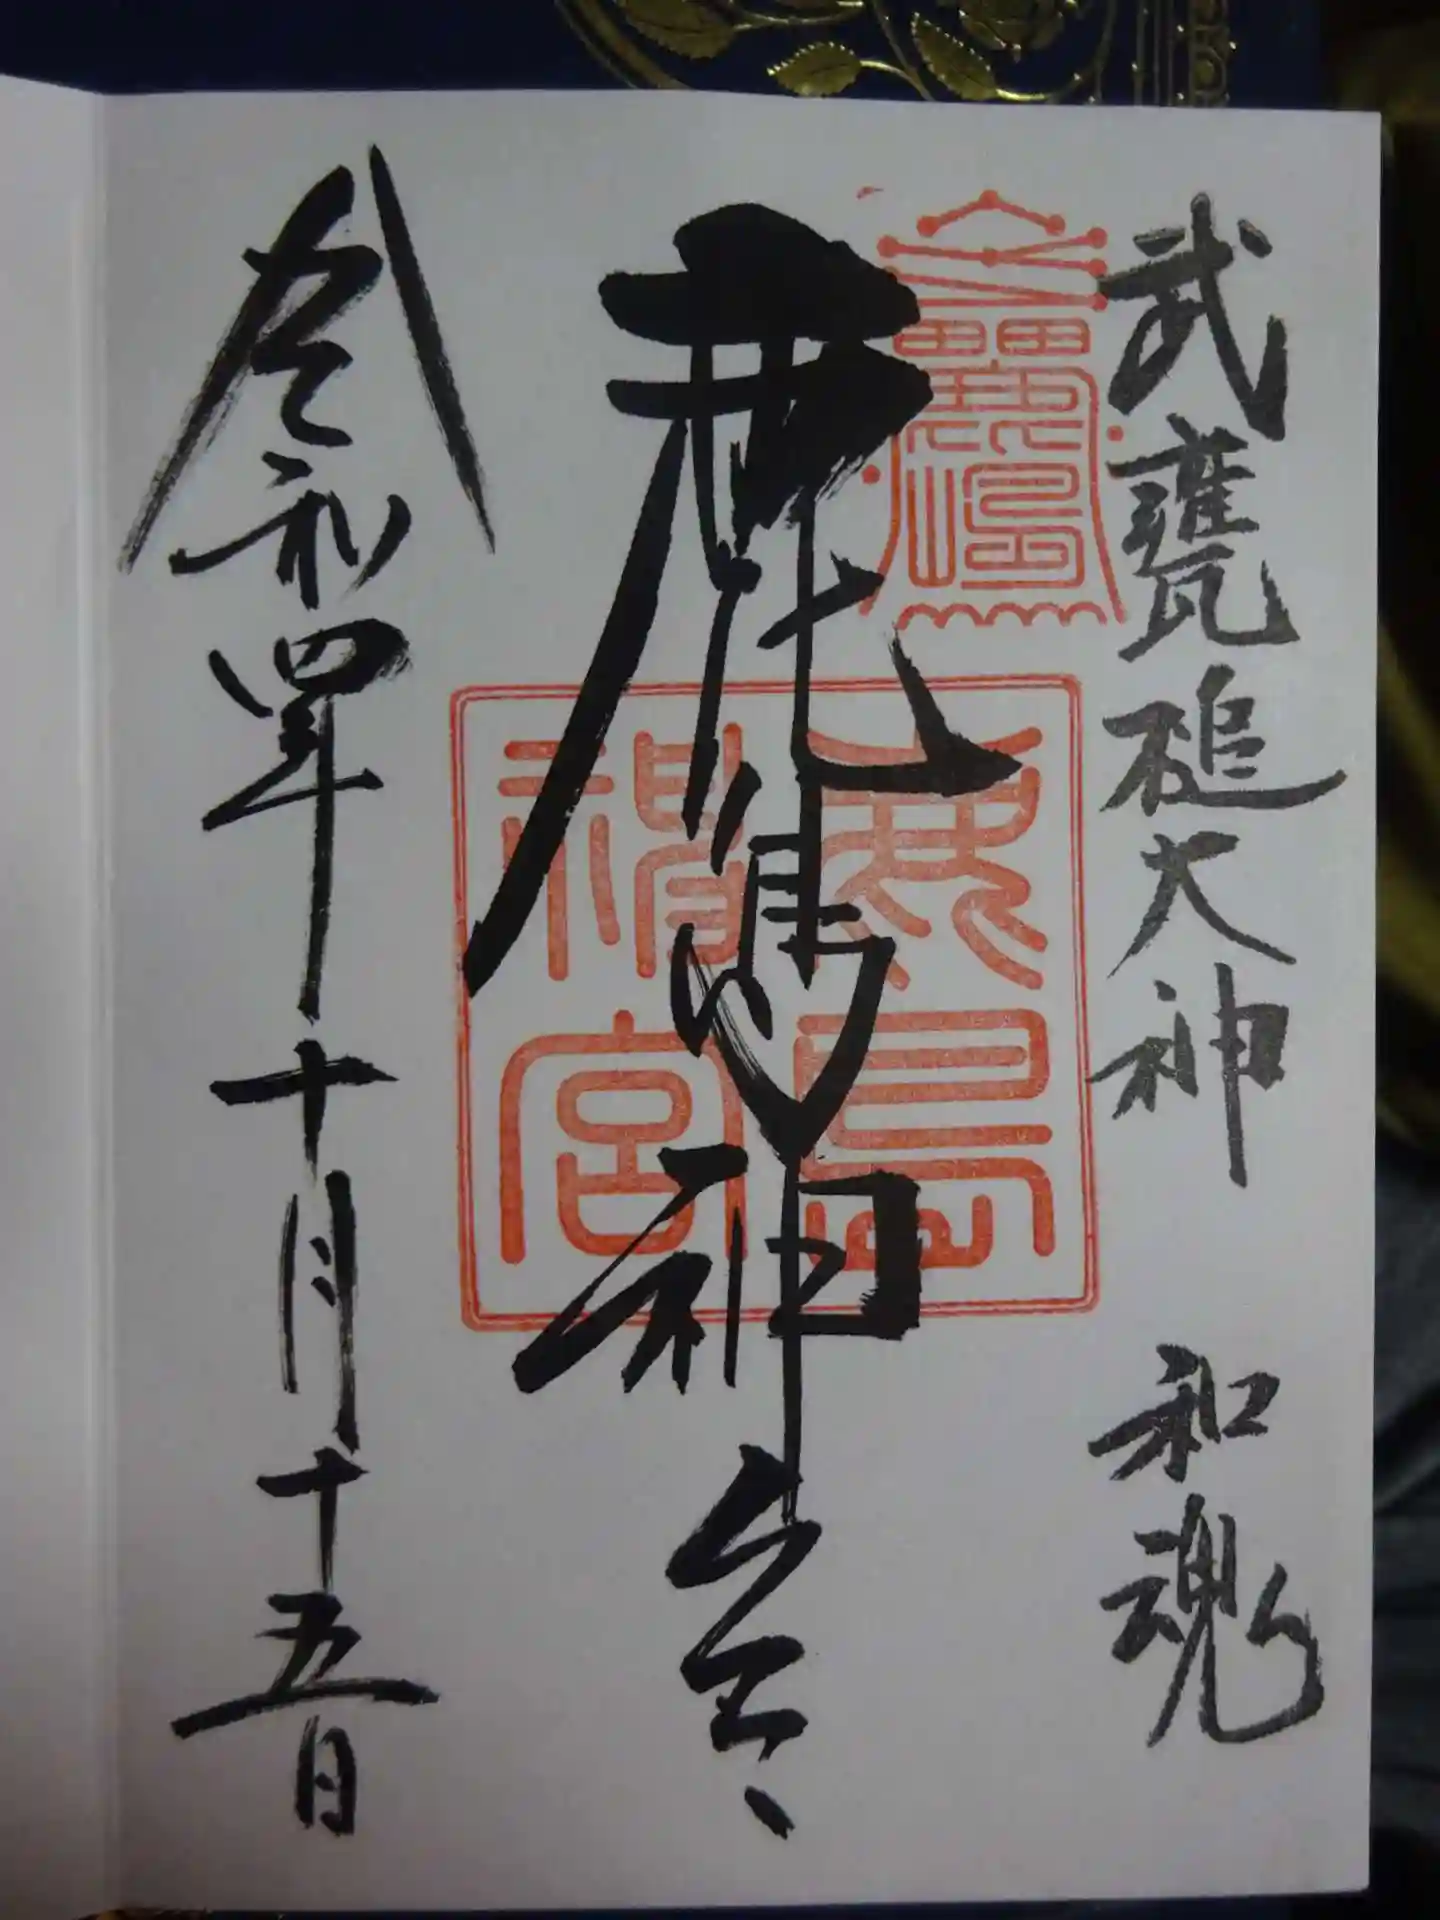 武甕槌大神 和魂
鹿島神宮
鹿島
神宮
令和四年十月十五日